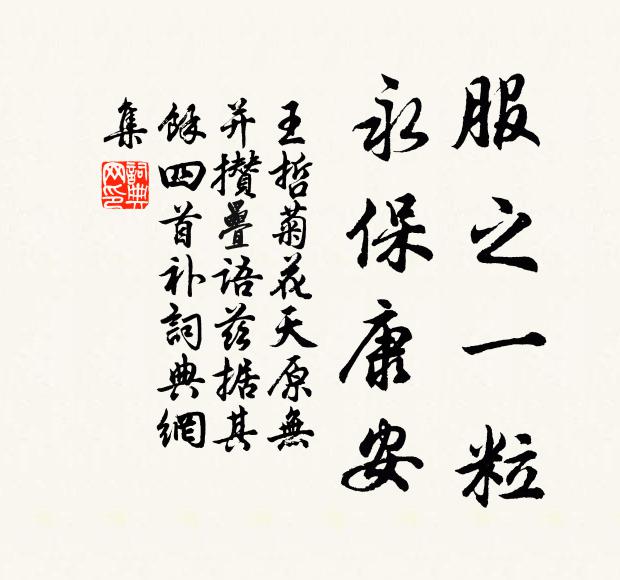 服之一粒
永保康安
王哲菊花天原無
并攢疊語茲据其
餘四首补詞典網
集
詞典
网印